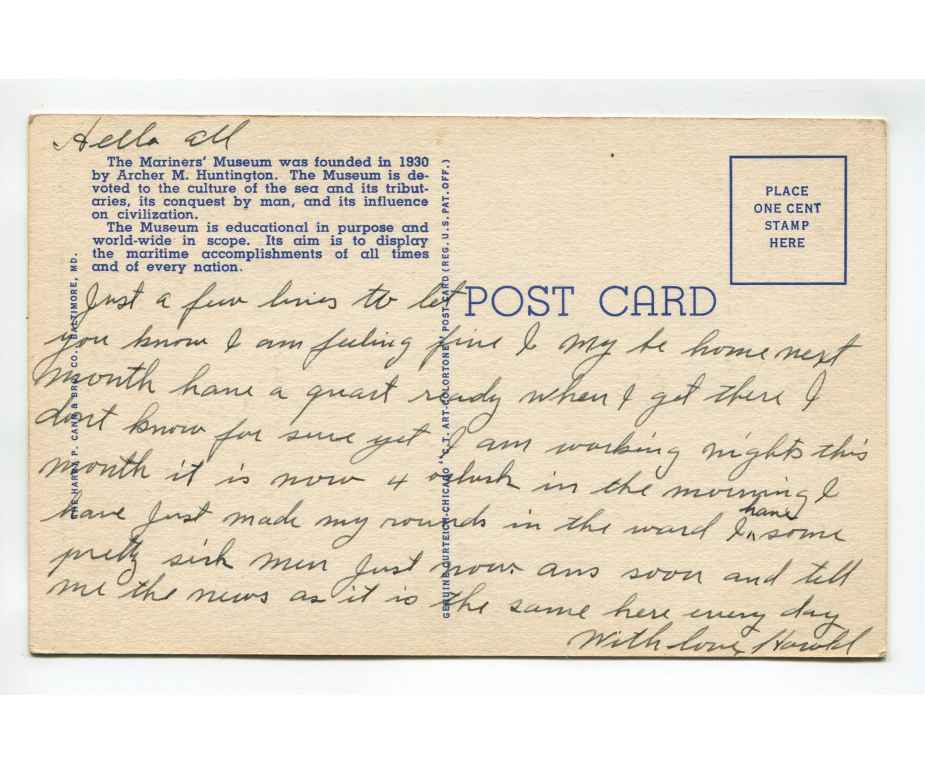 Hello all
The Mariners' Museum was founded in 1930
by Archer M. Huntington. The Museum is de-
voted to the culture of the sea and its tribut-
aries, its conquest by man, and its influence
on civilization.
The Museum is educational in purpose and
world-wide in scope. Its aim is to display
the maritime accomplishments of all times
and of every nation.
PLACE
ONE CENT
STAMP
HERE
POST CARD
THE HARRY P. CANN & BRO. CO., BALTIMORE, MD.
GENUINE CURTEICH-CHICAGO "C.T. ART-COLORTONE" POST CARD (REG. U.S. PAT. OFF.)
Just a few lines to let
you know I am feeling fine I my be home next
month have a quart ready when I get there I
dont know for sure yet I am working nights this
month it is now 4 oclock in the morning I
have Just made my rounds in the ward I have some
pretty sick men Just now. ans soon and tell
me the news as it is the same here every day
With love, Harold